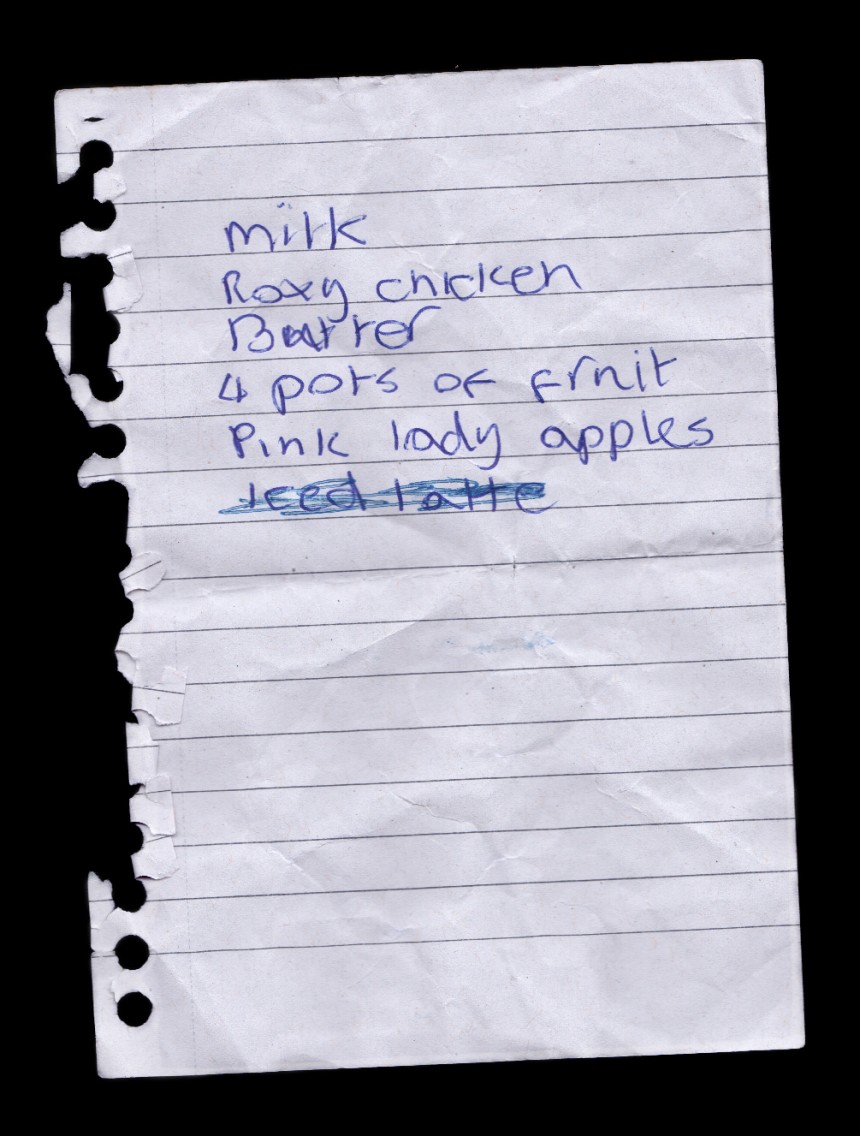 milk
Roxy chicken
Butter
4 pots of fruit
Pink lady apples
Iced latte